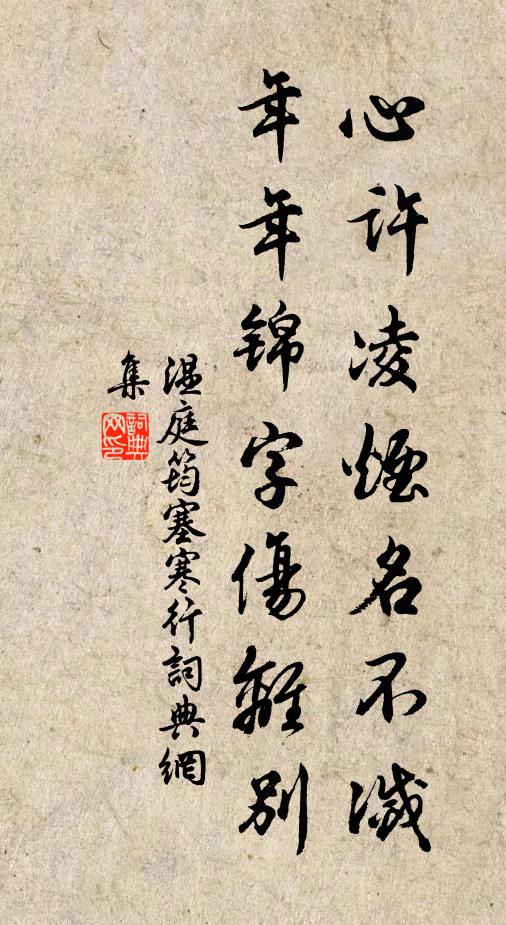 心許凌煙名不滅
年年錦字傷離別
溫庭筠塞寒行詞典網
集
詞典
网印